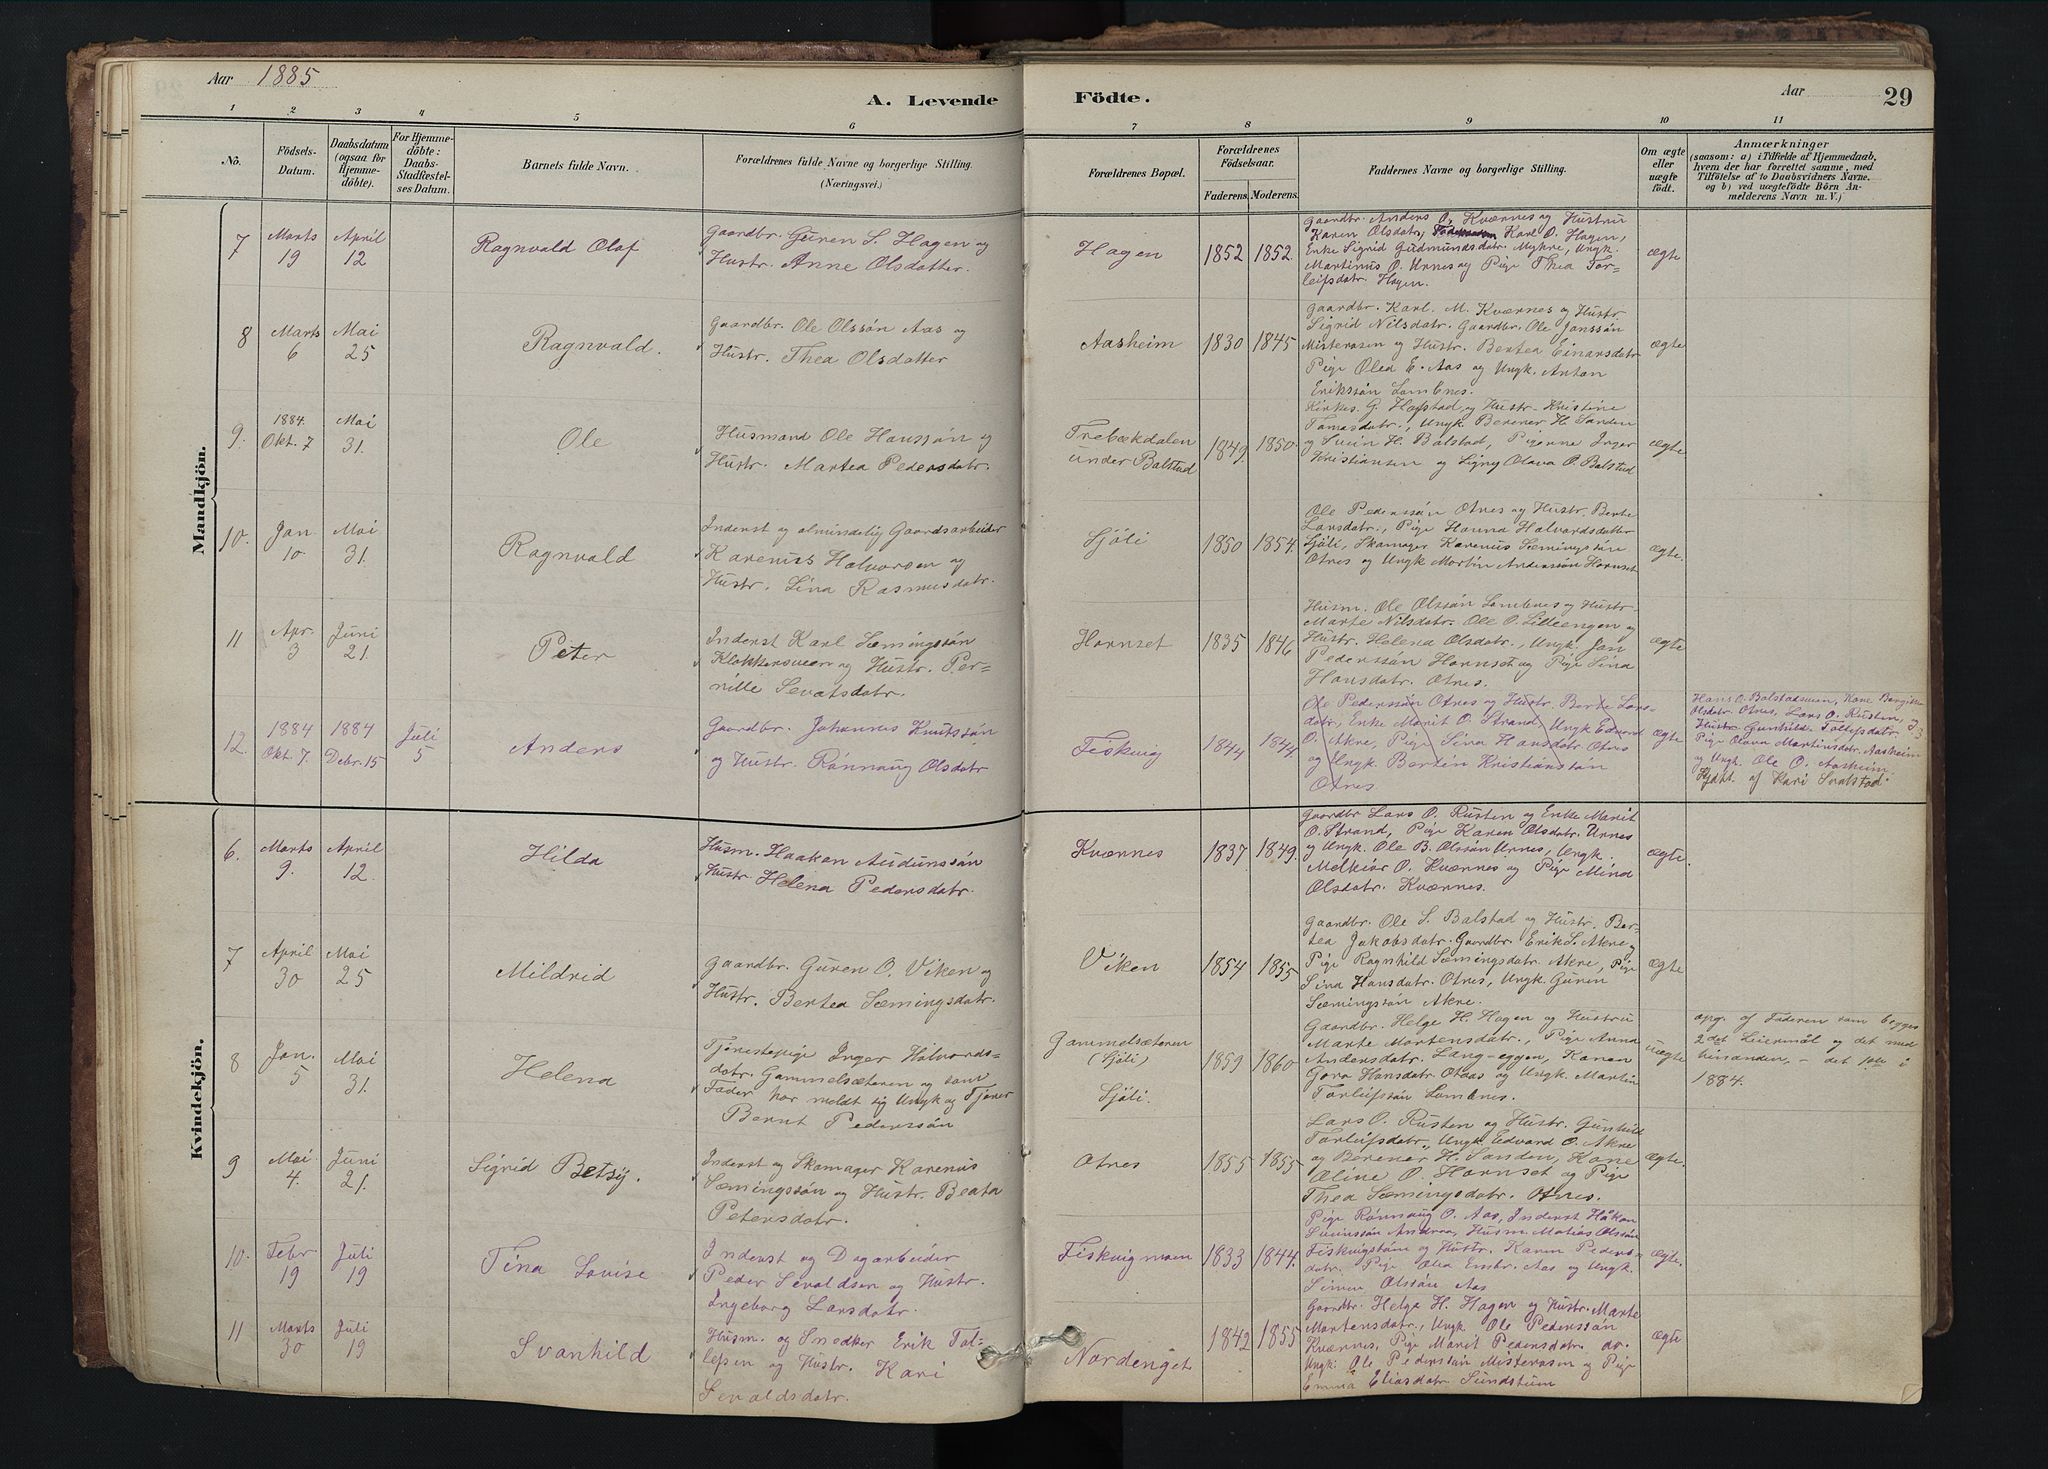 Aar 1885
A. Levende Födte.
Aar 29
1 2 3 4 5 6 7 8 9 10 11
No. Födsels-Datum. Daabsdatum (ogsaa for Hjemme-döbte). For Hjemme-döbte: Daabs-Stadfæstel-ses Datum. Barnets fulde Navn. Forældrenes fulde Navne og borgerlige Stilling. (Næringsvei.) Forældrenes Bopæl. Forældrenes Födselsaar. Faderens. Moderens. Faddernes Navne og borgerlige Stilling. Om ægte eller uægte födt. Anmærkninger
(saasom: a) i Tilfælde af Hjemmedaab, hvem der har forrettet samme, med Tilföielse af to Daabsvidners Navne, og b) ved uægtefödte Börn An-melderens Navn m. V.)
Mandkjön.
7 Marts 19 April 12 Ragnvald Olaf
Gaardbr. Guren S. Hagen og
Hustr. Anne Olsdatter.
Hagen 1852 1852.
Gaardbr. Anders O. Kværnes og Hustru
Karen Olsdatr, Karl O. Hagen,
Enke Sigrid Gudmundsdatr. Mykre, Ungk.
Martinus O. Urnes og Pige Thea Tor-
leifsdatr. Hagen.
ægte
8 Marts 6 Mai 25 Ragnvald.
Gaardbr. Ole Olssön Aas og
Hustr. Thea Olsdatter
Aasheim 1830 1845
Gaardbr. Karl. M. Kværnes og Hustr.
Sigrid Nilsdatr. Gaardbr. Ole Jonssön
Misterosen og Hustr. Bertea Einarsdatr
Pige Olea E. Aas og Ungk. Anton
Erikssön Lombnes.
ægte
9. 1884. Okt. 7 Mai 31. Ole
Husmand Ole Hanssön og
Hustr. Martea Pedersdatr.
Trebækdalen
under Balstad
1849. 1850.
Kirkes. G. Hofstad og Hustr. Kristine
Tomasdatr., Ungk. Berener H. Sanden
og Svein H. Balstad, Pigerne Inger
Kristiansen og Signy Olava O. Balstad
ægte
10. Jan. 10 Mai 31. Ragnvald
Inderst og almindelig Gaardsarbeider
Karenus Halvorsen og
Hustr. Lina Rasmusdatr.
Sjöli 1850 1854.
Ole Pederssön Otnes og Hustr. Berte
Larsdatr., Pige Hanna Halvardsdatter
Sjöli, Skomager Karenus Sæmingssön
Otnes og Ungk Morten Anderssön Hornset
ægte.
11 Apr. 3 Juni 21. Peter
Inderst Karl Sæmingssön
Klokkersveen og Hustr. Per-
nille Sevatsdatr.
Hornset 1835 1846
Husm. Ole Olssön Lombnes og Hustr.
Marte Nilsdatr. Ole O. Lilleengen og
Hustr. Helena Olsdatr., Ungk. Jon
Pederssön Hornset og Pige Lina
Hansdatr. Otnes.
ægte
12. 1884 Okt. 7. 1884 Debr. 15 Juli 5 Anders
Gaardbr. Johannes Knutssön
og Hustr. Rönnaug Olsdatr
Fiskvig 1844 1844.
Ole Pederssön Otnes og Hustr. Berte Lars-
datr., Enke Marit O. Strand, Ungk Edvard
O. Akre, Pige Lina Hansdatr Otnes
og Ungk. Bersten Kristianssön
Otnes.
ægte
Hans O. Balstadsveen, Kone Bergitte
Olsdatr. Otnes, Lars O. Rusten, og
Hustr. Gunhild Tollefsdatr.
Pige Olava Martinsdatr. Aasheim
og Ungk. Ole O. Aasheim
Hjdöbt. af Kari Svalstad.
Kvindekjön.
6. Marts 9. April 12. Hilda
Husm. Haakon Audunssön
Hustr. Helena Pedersdatr.
Kværnes 1837 1849.
Gaardbr Lars O. Rusten og Enke Marit
O. Strand, Pige Karen Olsdatr. Urnes
og Ungk. Ole B. Olssön Urnes, Ungk.
Melkior O. Kværnes og Pige Mina
Olsdatr. Kværnes.
ægte.
7 April 30 Mai 25 Mildrid
Gaardbr. Guren O. Viken og
Hustr. Bertea Sæmingsdatr.
Viken 1854 1855
Gaardbr. Ole S. Balstad og Hustr. Ber-
tea Jakobsdatr. Gaardbr. Erik S. Akre og
Pige Ragnhild Sæmingsdatr. Akre, Pige
Lina Hansdatr. Otnes, Ungk. Guren
Sæmingssön Akre.
ægte
8 Jan. 5 Mai 31. Helena
Tjenestepige Inger Halvords-
datr. Gammelsæteren og som
Fader har meldt sig Ungk og Tjener
Bernt Pederssön
Gammelsæteren
(Sjöli)
Sjöli.
1859 1860
Gaardbr. Helge H. Hagen og Hustru
Marte Mortensdatr., Pige Anna
Andersdatr. Lang-eggen, Konen
Gora Hansdatr. Otnes og Ungk. Martin
Torleifssön Lombnes.
uægte
opg. af Faderen som begges
2det Leiermål og det med
hinanden, – det 1ste i
1884.
9 Mai 4. Juni 21. Sigrid Betsy.
Inderst og Skomager Karenus
Sæmingssön og Hustr. Beata
Petersdatr.
Otnes 1855 1855
Lars O. Rusten og Hustr. Gunhild
Torleifsdatr., Ungk. Edvard O. Akre
og Berener H. Sanden, Kone
Oline O. Hornset og Pige
Thea Sæmingsdatr. Otnes.
ægte.
10. Febr 19 Juli 19 Tina Lovise
Inderst og Dagarbeider
Peder Sevaldsen og Hustr.
Ingeborg Larsdatr.
Fiskvigmoen 1833 1844.
Pige Rönnaug O. Aas, Inderst Håkon
Sveinssön Andraa, Husm. Matias Olssön
Fiskvigstöen og Hustr. Karen Peders-
datr. Pige Olea Embr. Aas og Ungk.
Simen Olssön Aas
ægte.
11 Marts 30 Juli 19 Svanhild
Husm. og Snedker Erik Tol-
lefsen og Hustr. Kari
Sevaldsdatr.
Nordenget 1842 1855
Gaardbr. Helge H. Hagen og Hustr. Marte
Mortensdatr., Ungk. Ole Pederssön
Kværnes, Pige Marit Pedersdatr. do.
Ungk. Ole Pederssön Misterosen og Pige
Emma Eliasdatr. Sundstuen
ægte